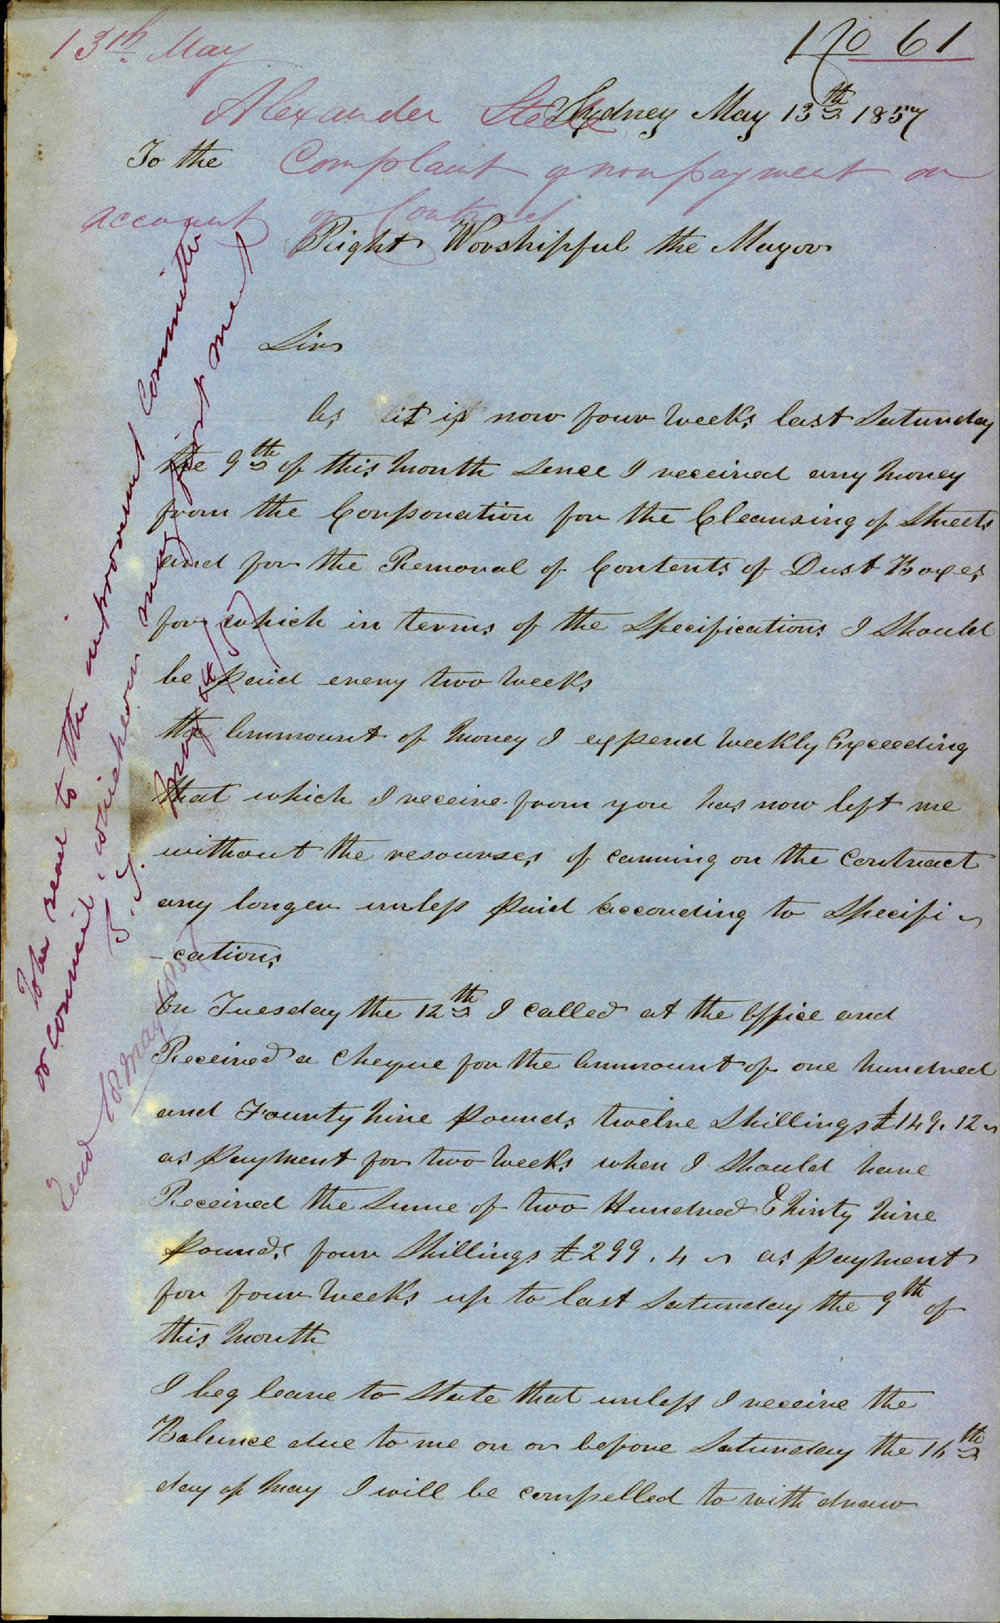 13th May
No 61
Alexander Steele
Sydney May 13th 1857
To the
Complaint of nonpayment on
account of Contract
Right Worshipful the Mayor
Sir
As it is now four Weeks last Saturday
the 9th of this Month Sence I received any Money
from the Corporation for the Cleansing of Streets
and for the Removal of Contents of Dust Boxes
for which in terms of the Specifications I Should
be paid every two Weeks
the Ammount of Money I expend Weekly Exceeding
that which I receive from you has now left me
without the resourses of carring on the Contract
any longer unless Paid According to Specifi
-cations
On Tuesday the 12th I called at the Office and
Received a Cheque for the Ammount of one hundred
and Fourty Nine Pounds twelve Shillings £149.12
as Payment for two Weeks when I Should have
Received the Sume of two Hundred & Ninty Nine
Pounds four Shillings £299.4 as Payment
for four Weeks up to last Saturday the 9th of
this Month
I beg leave to State that unless I receive the
Balance due to me on or before Saturday the 16th
day of May I will be compelled to with draw
To be read to the improvement Committee
or Council, whichever may first meet
May 14/57
Read 18 May 1857